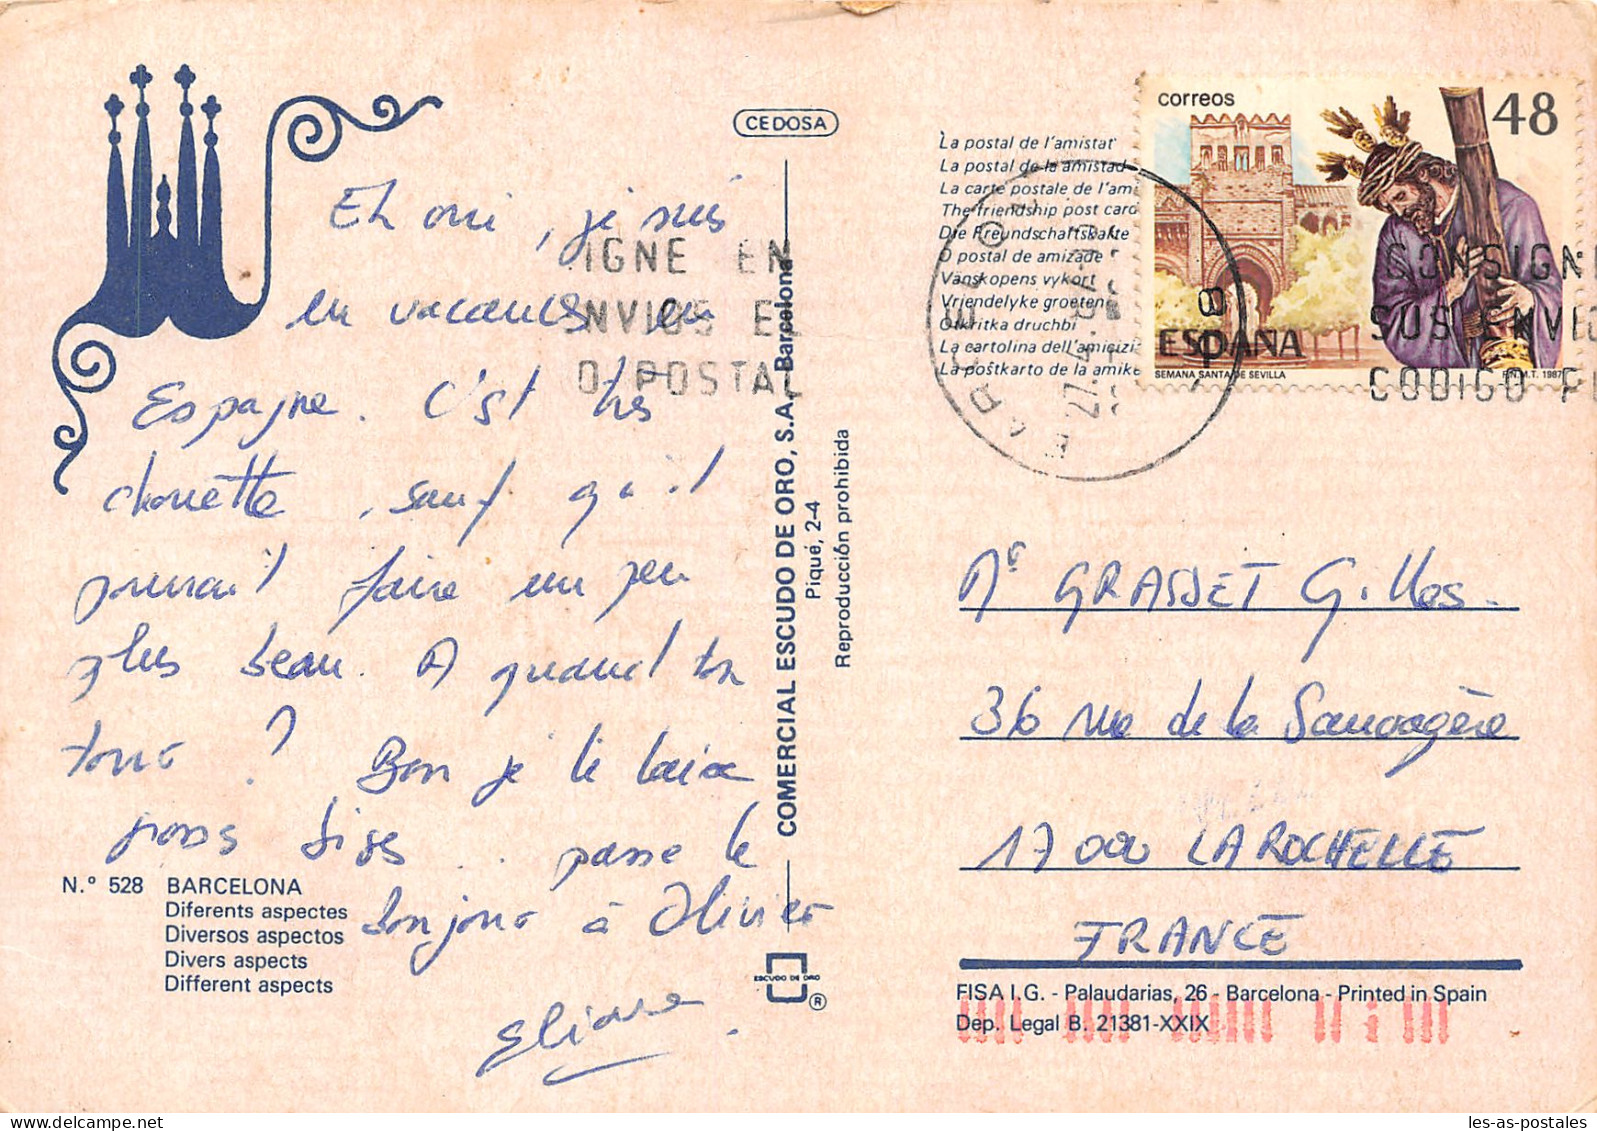 CEDOSA
Eh oui, je suis
en vacances en
Espagne. C'est très
chouette, sauf qu'il
pourrait faire un peu
plus beau. A quand ton
tour ? Bon je te laisse
gros bises .. passe le
bonjour à Olivier
Eliane
N.º 528 BARCELONA
Diferents aspectes
Diversos aspectos
Divers aspects
Different aspects
COMERCIAL ESCUDO DE ORO, S.A. Barcelona
Piqué, 2-4
Reproducción prohibida
ESCUDO DE ORO
®
La postal de l'amistat
La postal de la amistad
La carte postale de l'ami
The friendship post card
Die Freundschaftskarte
O postal de amizade
Vänskopens vykort
Vriendelyke groeten
Otkritka druchbi
La cartolina dell'amicizi
La poŝtkarto de la amike
correos 48
ESPAÑA
SEMANA SANTA DE SEVILLA F.N.M.T. 1987
IGNE EN
NVIOS EL
O POSTAL
CONSIGNE
SUS ENVIO
CODIGO P
Mr GRASSET Gilles.
36 rue de la Sauvagère
17000 LA ROCHELLE
FRANCE
FISA I.G. - Palaudarias, 26 - Barcelona - Printed in Spain
Dep. Legal B. 21381-XXIX
les-as-postales